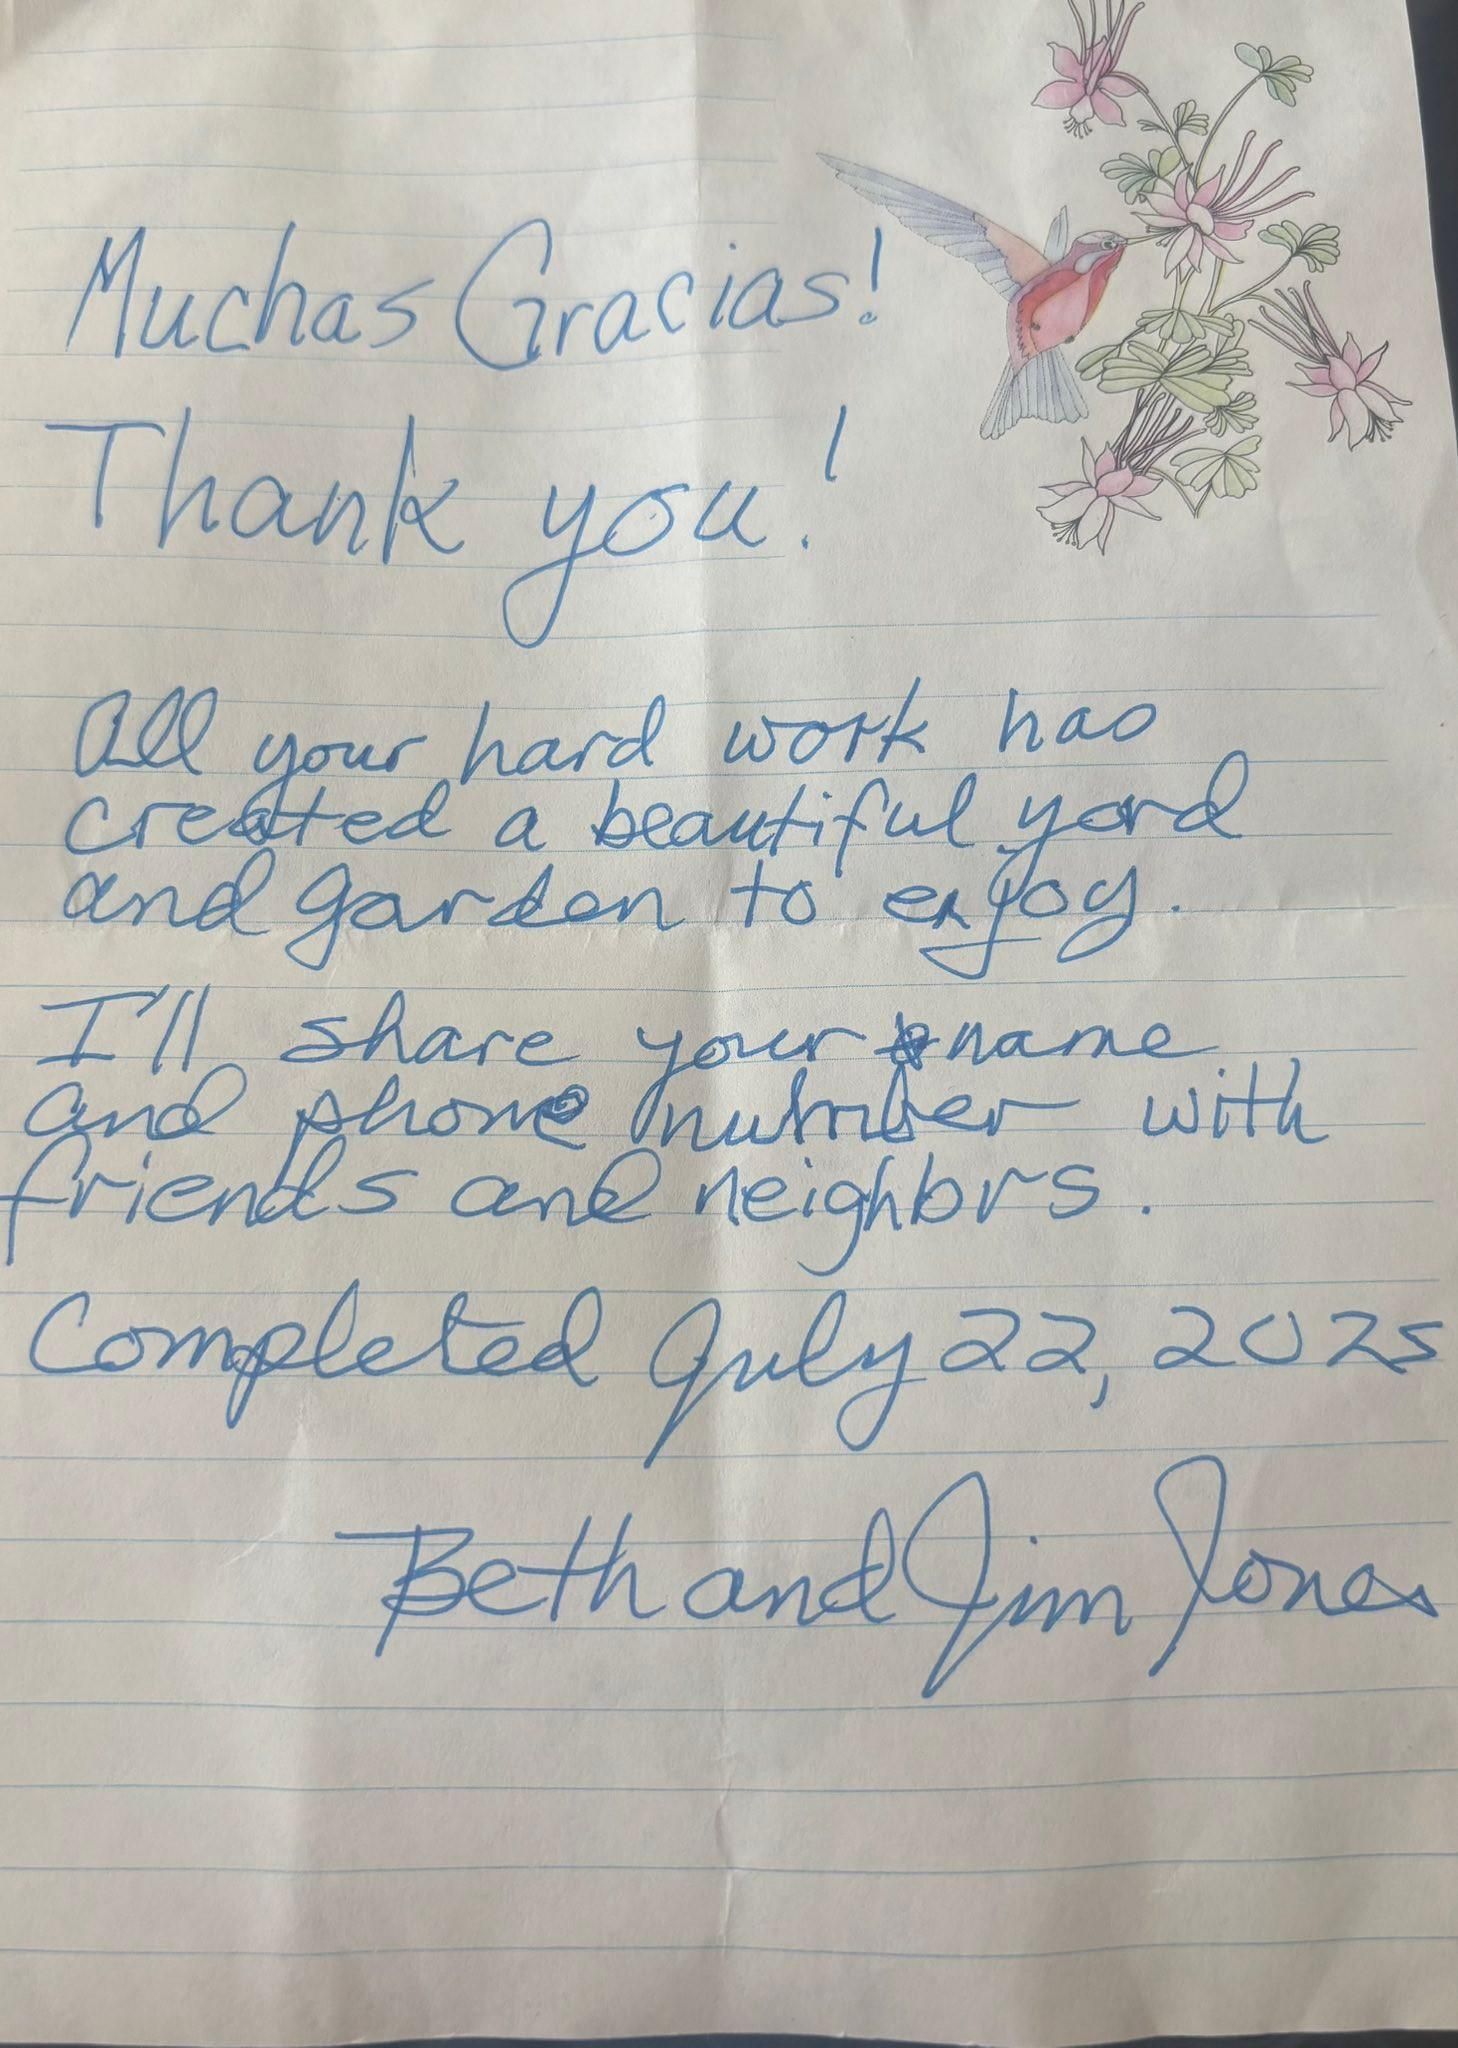 Muchas Gracias!
Thank you!
All your hard work has
created a beautiful yard
and garden to enjoy.
I'll share your name
and phone number with
friends and neighbors.
Completed July 22, 2025
Beth and Jim Jones